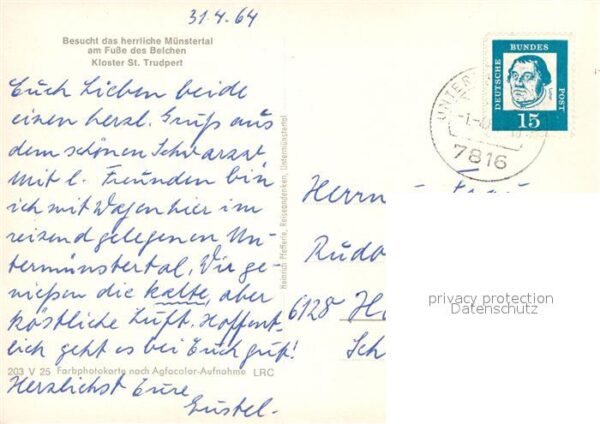 31.4.64
Besucht das herrliche Münstertal
am Fuße des Belchen
Kloster St. Trudpert
Euch Lieben beide
einen herzl. Gruß aus
dem schönen Schwarzw.
Mit l. Freunden bin
ich mit Wagen hier im
reizend gelegenen Un-
termünstertal. Wir ge-
nießen die kalte, aber
köstliche Luft. Hoffent-
lich geht es bei Euch gut!
203 V 25 Farbphotokarte nach Agfacolor-Aufnahme LRC
Herzlichst Eure
Gustel.
Heinrich Pfefferle, Reiseandenken, Untermünstertal
DEUTSCHE
BUNDES
POST
15
UNTER
7816
Herrn u. Frau
Rudo
6128 H
Sch
privacy protection
Datenschutz